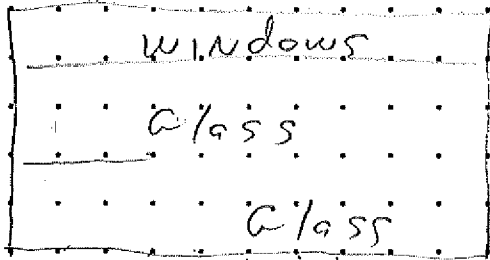 WINdows
Glass
Glass